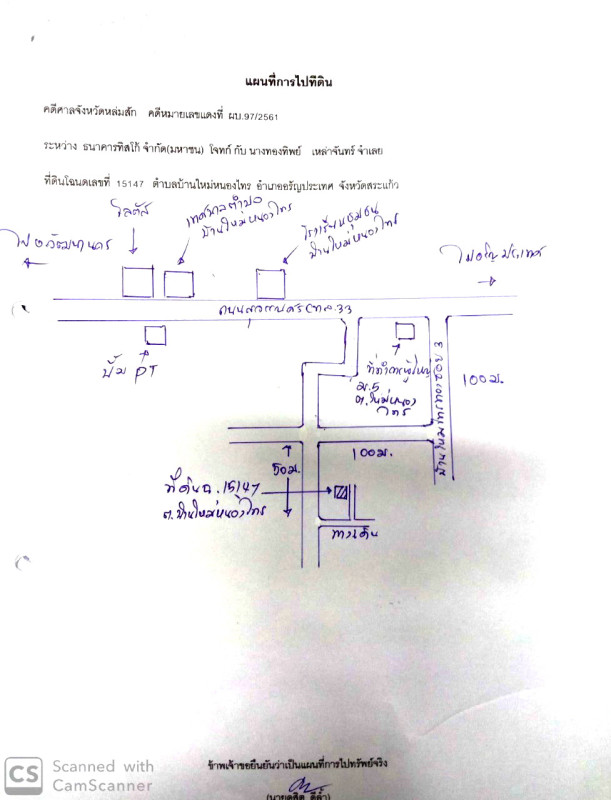 แผนที่การไปที่ดิน
คดีศาลจังหวัดหล่มสัก คดีหมายเลขแดงที่ ผบ.97/2561
ระหว่าง ธนาคารทิสโก้ จำกัด(มหาชน) โจทก์ กับ นางทองทิพย์ เหล่าจันทร์ จำเลย
ที่ดินโฉนดเลขที่ 15147 ตำบลบ้านใหม่หนองไทร อำเภออรัญประเทศ จังหวัดสระแก้ว
โลตัส
เทศบาลตำบล
บ้านใหม่หนองไทร
โรงเรียนชุมชน
บ้านใหม่หนองไทร
ไป อ.วัฒนานคร
ไปอรัญประเทศ
ถนนสุวรรณศร (ทล.33
ปั๊ม PT
ที่ทำการผู้ใหญ่
ม.5
ต.ใหม่หนอง
ไทร
บ้านใหม่ไทรทอง ซอย 3
100 ม.
100 ม.
50 ม.
ที่ดิน ฉ. 15147
ต.บ้านใหม่หนองไทร
ทางเดิน
ข้าพเจ้าขอยืนยันว่าเป็นแผนที่การไปทรัพย์จริง
CS Scanned with
CamScanner